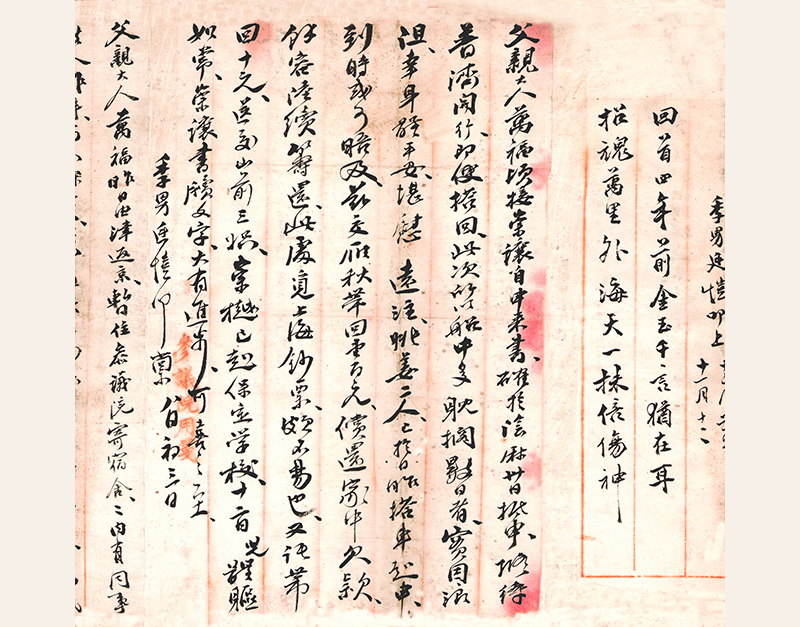 季男廷愷叩上
十一月十二
回首四年前金玉千言猶在耳
招魂萬里外海天一抹倍傷神
父親大人萬福頃接崇讓自申來書確於陰曆廿日抵申擬待
普濟開行即便搭回此次船中多耽擱數日者實因浪
阻幸身體平安堪慰 遠注姚姜二人已於日昨搭車赴申
到時或可晤及茲交雁秋帶回壹百元償還家中欠款
餘容陸續籌還此處覓上海鈔票頗不易也又託帶
回十元送交山前三嫂崇樾已赴保定學校兒體軀
如常崇讓書牘文字大有進步可喜之至
季男廷愷叩稟 八月初三日
父親大人萬福昨日由津返京暫住參議院寄宿舍〻內有同事